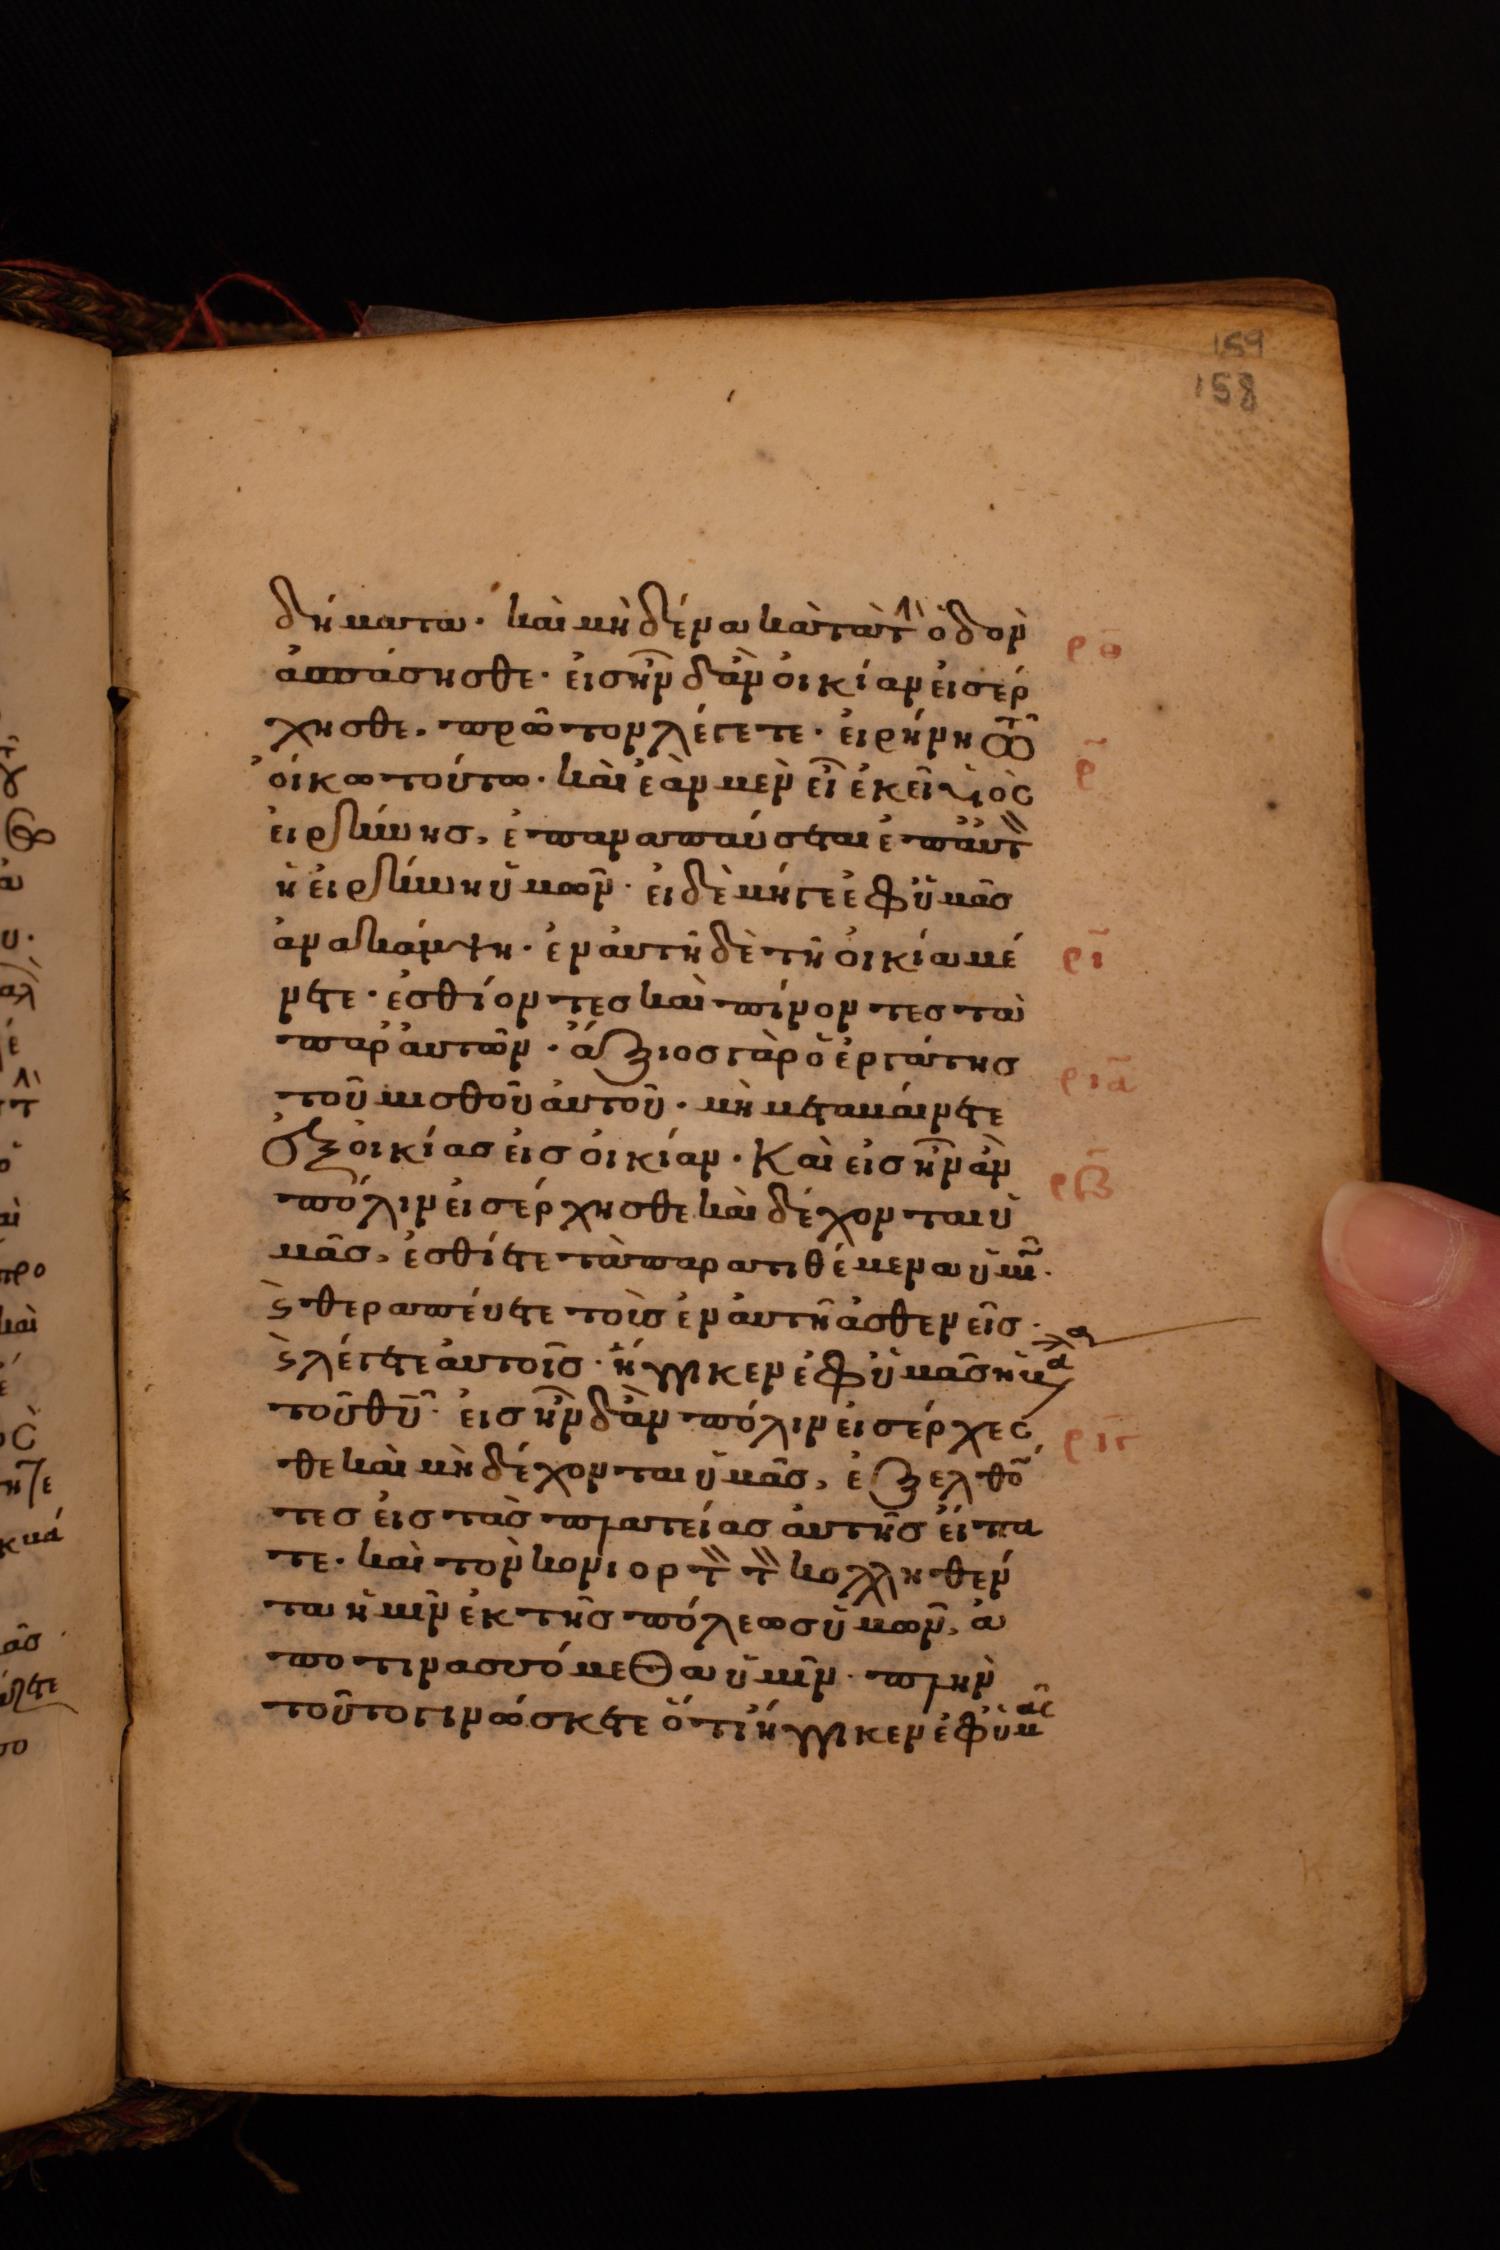 159
158
δήματα· καὶ μηδένα κατὰ τ̀ ὁδὸν ρθ
ἀσπάσησθε· εἰς ἣν δ̓ ἂν οἰκίαν εἰσέρ
χησθε. πρῶτον λέγετε· εἰρήνη τῶ ρ
οἴκω τούτω· καὶ ἐὰν μὲν εἶ ἐκεῖ υἱὸς
εἰρήνης, ἐπαναπαύσεται ἐπ̓ αὐτ
ἡ εἰρήνη ὑμῶν· εἰ δὲ μήγε ἐφ ὑμᾶς
ἀνακάμψη· ἐν αὐτῆ δὲ τῆ οἰκία μέ ρι
νετε· ἐσθίοντες καὶ πίνοντες τὰ
παῤ αὐτῶν· ἄξιος γὰρ ὁ ἐργάτης ρια
τοῦ μισθοῦ αὐτοῦ· μὴ μεταμαίνετε
ἐξ οἰκίας εἰς οἰκίαν· Καὶ εἰς ἣν ἂν ριβ
πόλιν εἰσέρχησθε καὶ δέχονται ὑ
μᾶς, ἐσθίετε τὰ παρατιθέμενα ὑμ̃·
ϛ̀ θεραπεύετε τοὺς ἐν αὐτῆ ἀσθενεῖς·
ϛ̀ λέγετε αὐτοῖς· ἤγγικεν ἐφ ὑμᾶς ἡ
τοῦ θυ· εἰς ἣν δ̓ ἂν πόλιν εἰσέρχεσ ριγ
θε καὶ μὴ δέχονται ὑμᾶς, ἐξελθό
τες εἰς τὰς πλατείας αὐτῆς εἴπα
τε· καὶ τὸν κονιορτ τ κολληθέν
τα ἡμῖν ἐκ τῆς πόλεως ὑμῶν, ἀ
ποτινασσόμεθα ὑμῖν· πλὴν
τοῦτο γινώσκετε ὅτι ἤγγικεν ἐφ ὑμᾶς